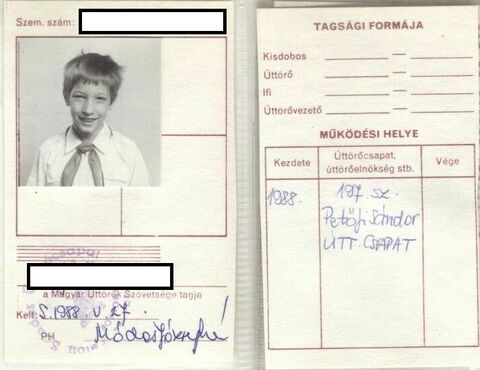 Szem. szám:
a Magyar Úttörők Szövetsége tagja
Kelt: S. 1988. V. 27.
PH
TAGSÁGI FORMÁJA
Kisdobos — —
Úttörő — —
Ifi — —
Úttörővezető — —
MŰKÖDÉSI HELYE
Kezdete Úttörőcsapat, úttörőelnökség stb. Vége
1988. 197. sz.
Petőfi Sándor
ÚTT. CSAPAT